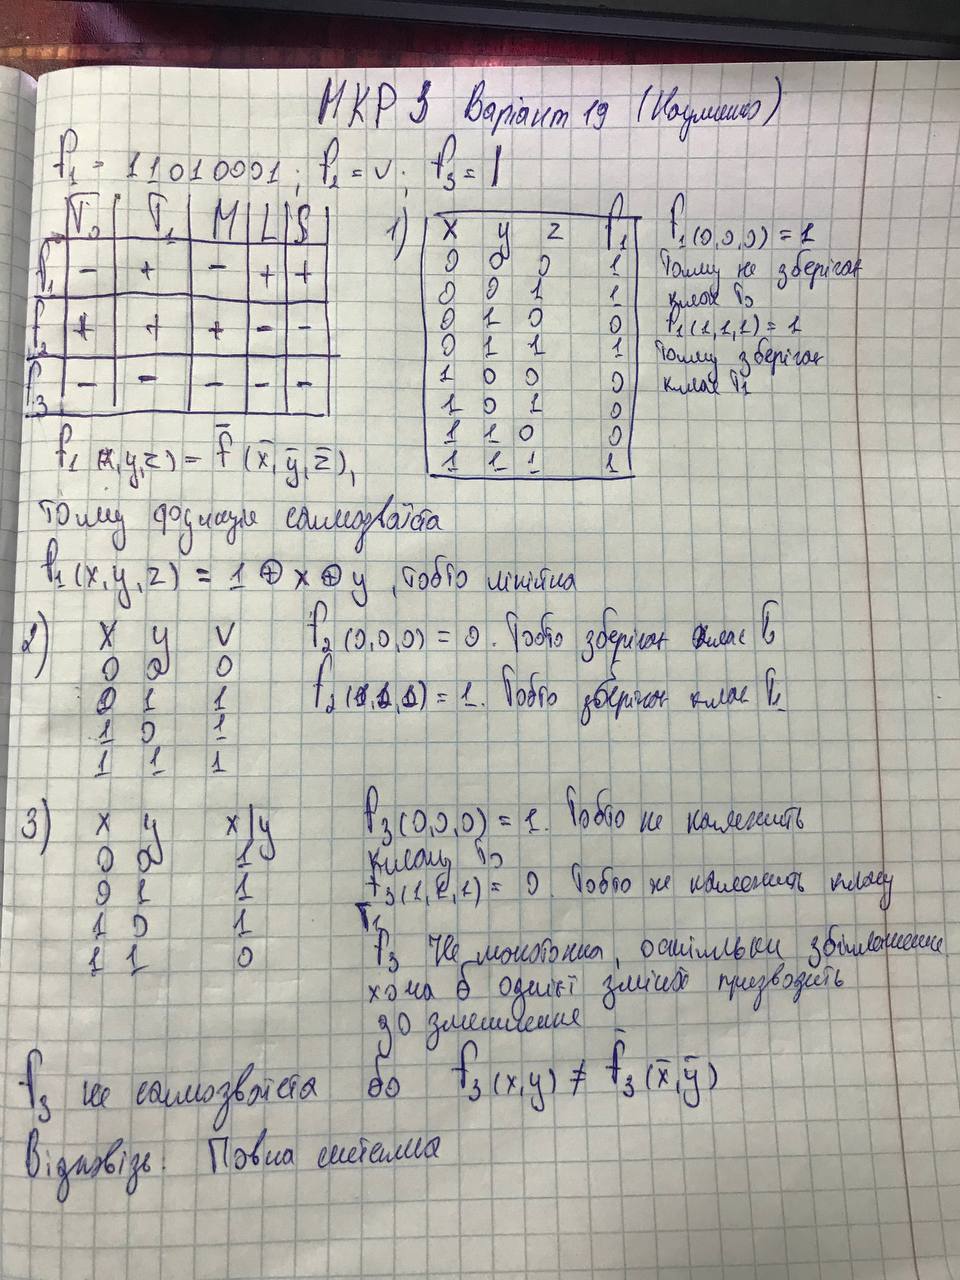 МКР 3 Варіант 19 (Науменко)
f₁ = 11010001; f₂ = ∨; f₃ = |
T₀ T₁ M L S
f₁ − + − + +
f₂ + + + − −
f₃ − − − − −
f₁(x,y,z) = f̄(x̄,ȳ,z̄),
1)
x y z f₁
0 0 0 1
0 0 1 1
0 1 0 0
0 1 1 1
1 0 0 0
1 0 1 0
1 1 0 0
1 1 1 1
f₁(0,0,0) = 1
Тому не зберігає
клас T₀
f₁(1,1,1) = 1
Тому зберігає
клас T₁
Тому функція самозвоїста
f₁(x,y,z) = 1 ⊕ x ⊕ y, тобто лінійна
2)
x y ∨
0 0 0
0 1 1
1 0 1
1 1 1
f₂(0,0,0) = 0. Тобто зберігає клас T₀
f₂(1,1,1) = 1. Тобто зберігає клас T₁
3)
x y x|y
0 0 1
0 1 1
1 0 1
1 1 0
f₃(0,0,0) = 1. Тобто не належить
класу T₀
f₃(1,1,1) = 0. Тобто не належить класу
T₁
f₃ не монотонна, оскільки збільшення
хоча б однієї змінної призводить
до зменшення
f₃ не самозвоїста бо f₃(x,y) ≠ f̄₃(x̄,ȳ)
Відповідь: Повна система